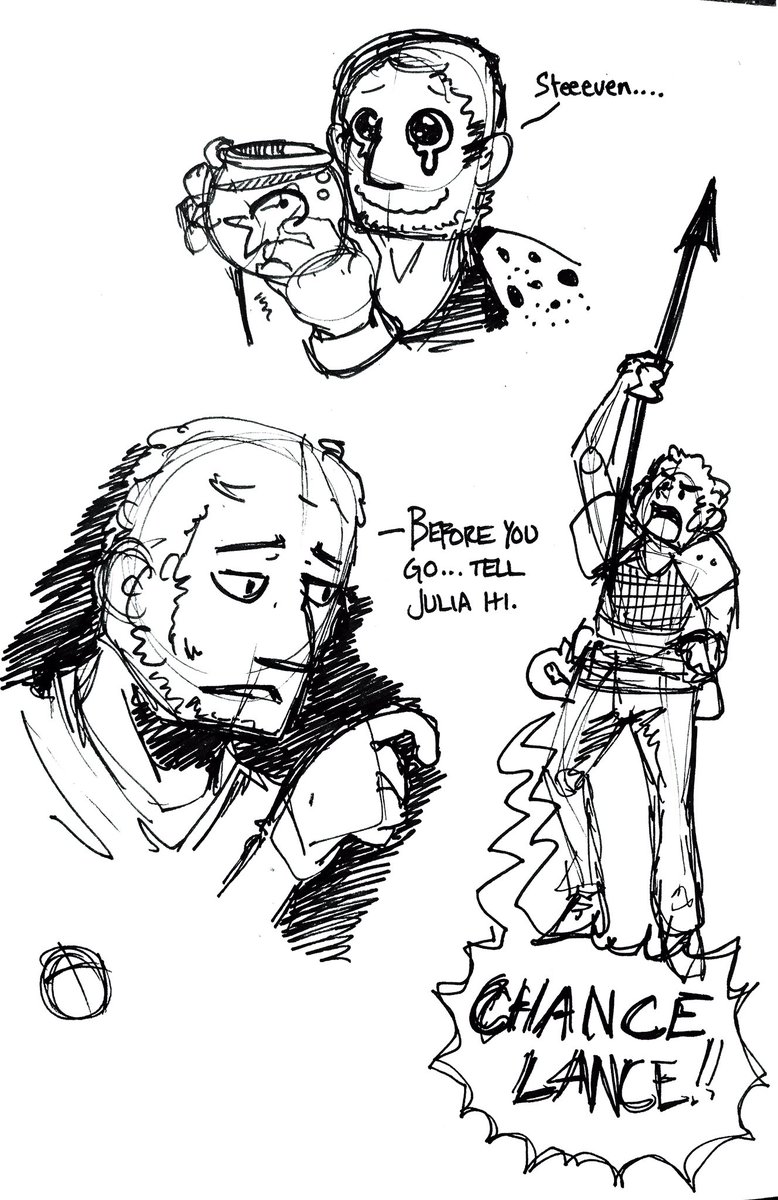 Steeeven....
—BEFORE YOU
GO... TELL
JULIA HI.
CHANCE
LANCE!!